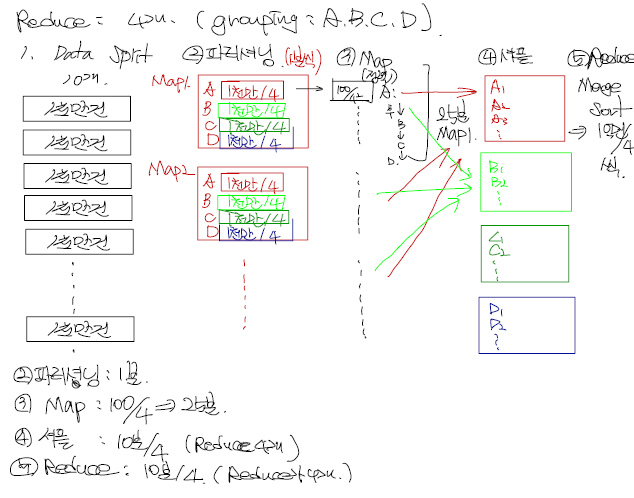 Reduce = 4개. (grouping : A.B.C.D).
1. Data Split
10개.
1천만건
1천만건
1천만건
1천만건
1천만건
1천만건
② 파티셔닝
Map1.
A 1천만/4
B 1천만/4
C 1천만/4
D 1천만/4
Map2
A 1천만/4
B 1천만/4
C 1천만/4
D 1천만/4
③ Map
100/4
A:
B
C
D.
Map1.
④ 셔플
A1
A2
A3
B1
B2
C1
C2
D1
D2
⑤ Reduce
Merge
Sort
⇒ 10억/4
씩.
② 파티셔닝 : 1
③ Map : 100/4 ⇒
④ 셔플 : 10억/4 (Reduce 4개)
⑤ Reduce : 10억/4. (Reduce가 4개.)